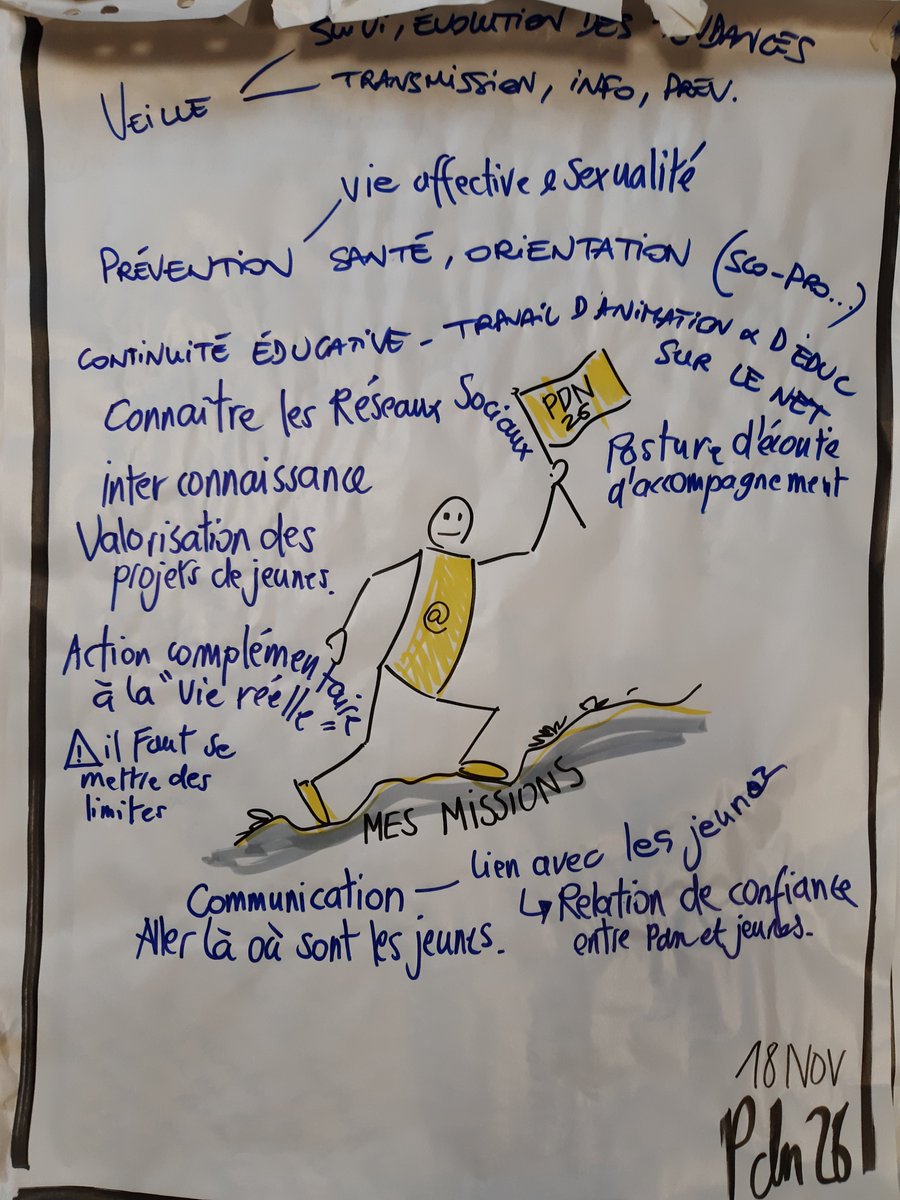 SUIVI, ÉVOLUTION DES TENDANCES
VEILLE
TRANSMISSION, INFO, PRÉV.
vie affective & sexualité
PRÉVENTION SANTÉ, ORIENTATION (SCO-PRO...)
CONTINUITÉ ÉDUCATIVE - TRAVAIL D'ANIMATION & D'ÉDUC
SUR LE NET
Connaître les Réseaux Sociaux
PDN
26
Posture d'écoute
d'accompagnement
inter connaissance
Valorisation des
projets de jeunes.
@
Action complémentaire
à la "vie réelle"
⚠ il faut se
mettre des
limites
MES MISSIONS
Communication — Lien avec les jeunes
↳ Relation de confiance
entre Pdn et jeunes.
Aller là où sont les jeunes.
18 NOV
Pdn 26